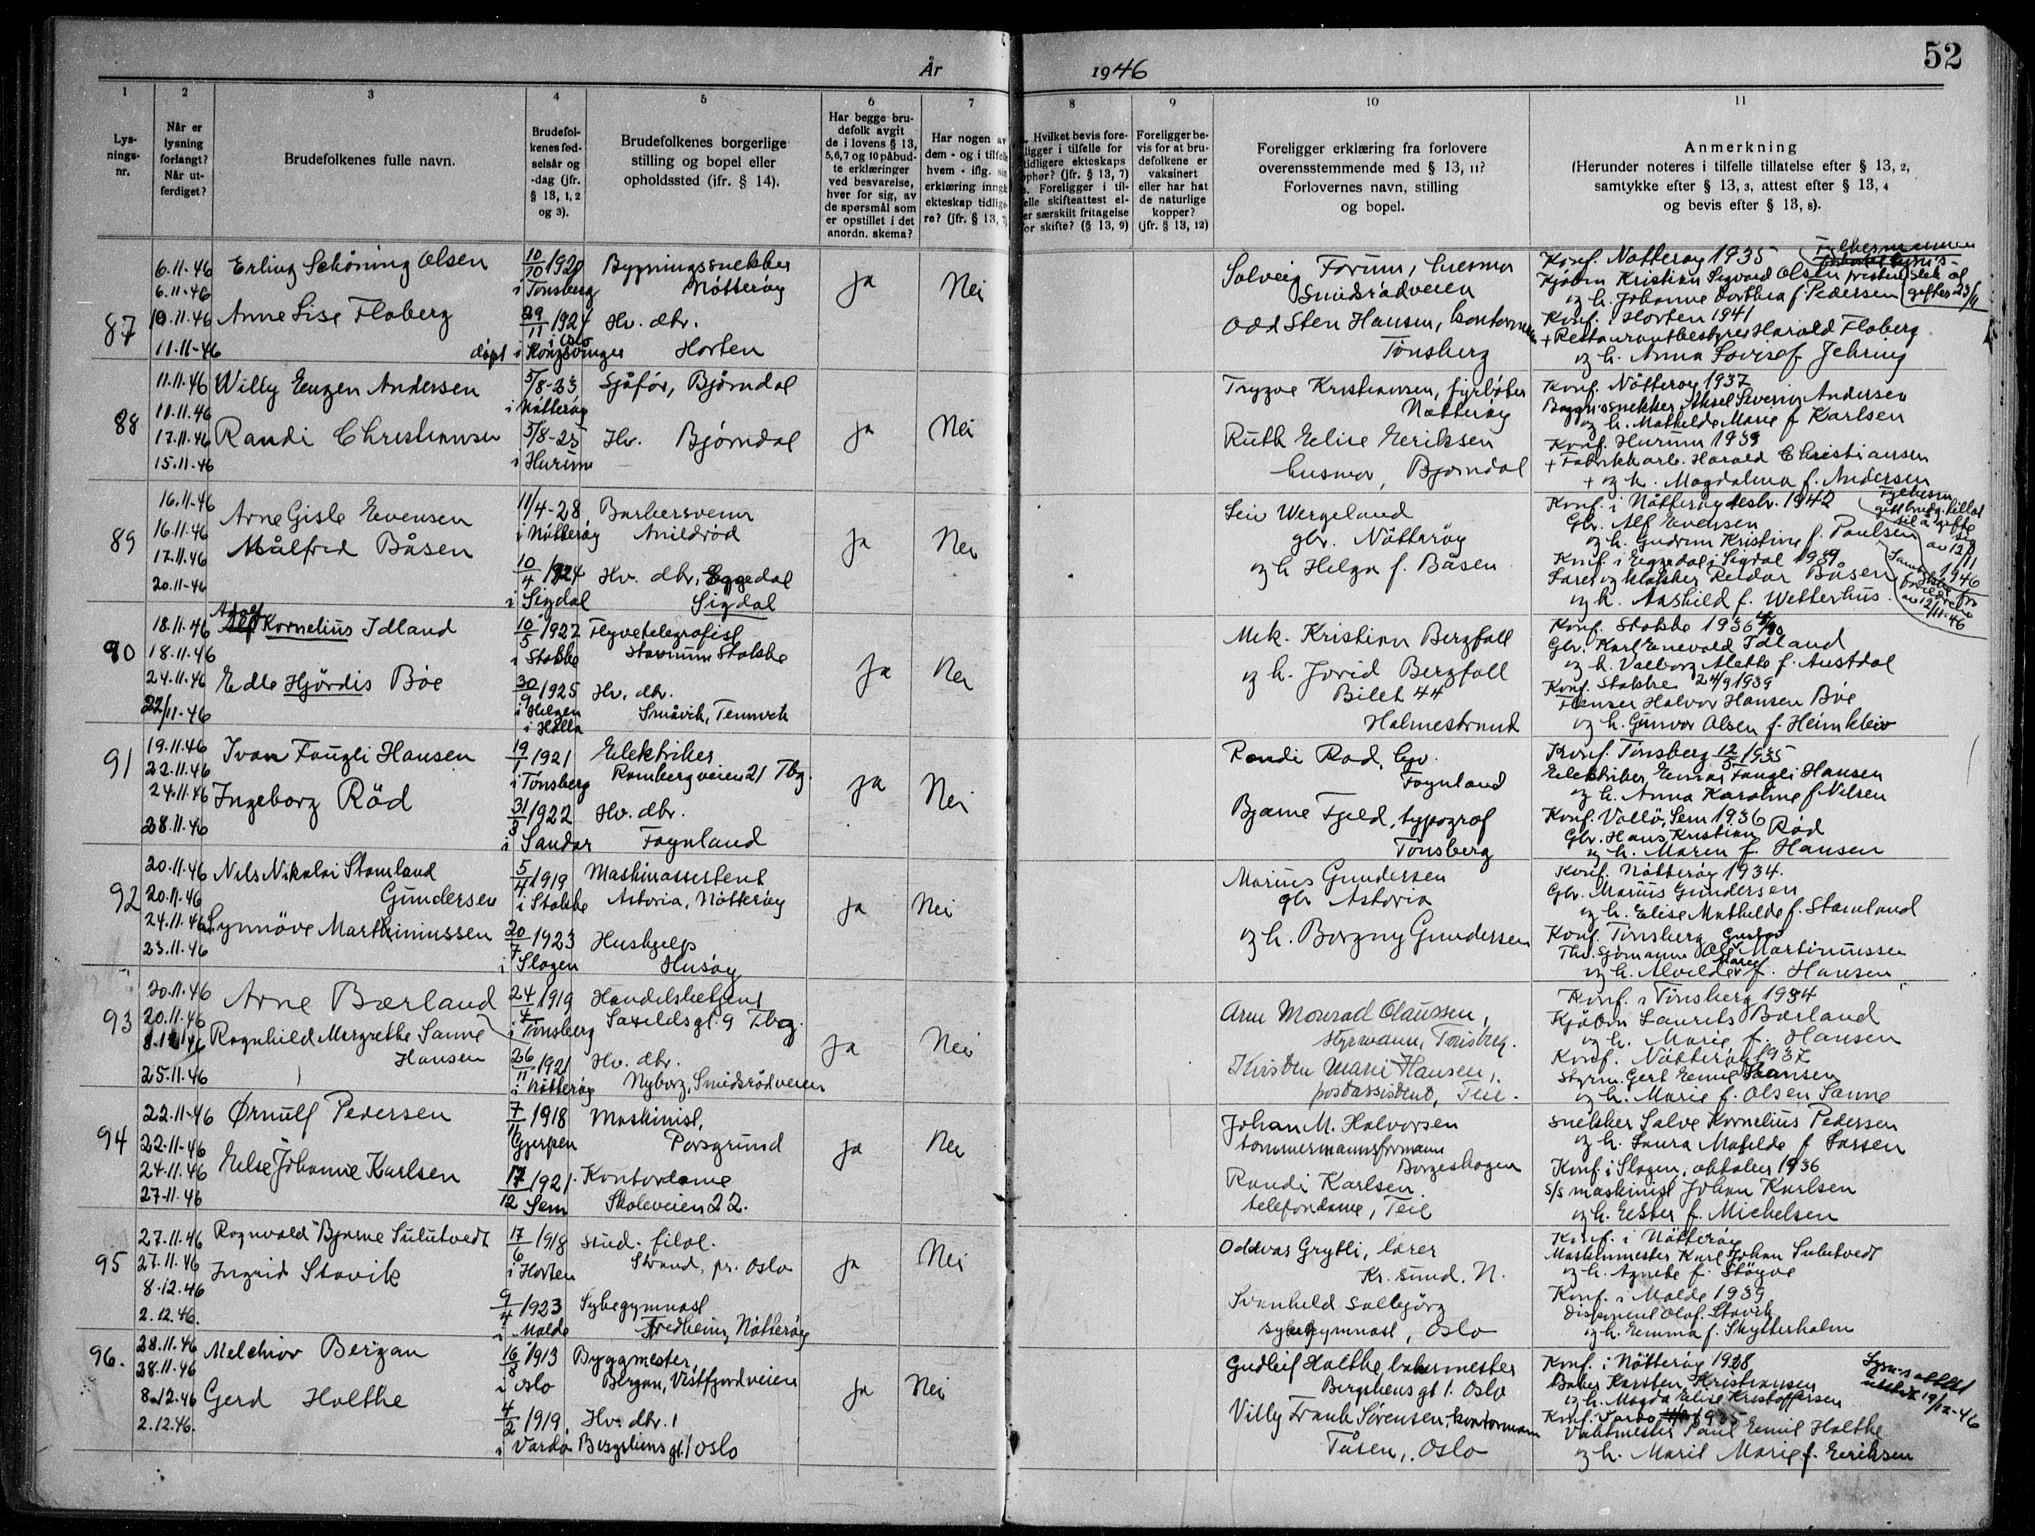 År 1946
52
1 2 3 4 5 6 7 8 9 10 11
Lys-
nings-
nr.
Når er
lysning
forlangt?
Når ut-
ferdiget?
Brudefolkenes fulle navn.
Brudefol-
kenes fød-
selsår og
-dag (jfr.
§ 13, 1, 2
og 3).
Brudefolkenes borgerlige
stilling og bopel eller
opholdssted (jfr. § 14).
Har begge bru-
defolk avgit
de i lovens § 13,
5,6,7 og 10 påbud-
te erklæringer
ved besvarelse,
hver for sig, av
de spørsmål som
er opstillet i det
anordn. skema?
Har nogen av
dem - og i tilfelle
hvem - iflg. sin
erklæring inngått
ekteskap tidlige-
re? (jfr. § 13, 7)
Hvilket bevis fore-
ligger i tilfelle for
tidligere ekteskaps
ophør? (jfr. § 13, 7)
Foreligger i til-
felle skifteattest el-
ler særskilt fritagelse
for skifte? (§ 13, 9)
Foreligger be-
vis for at bru-
defolkene er
vaksinert
eller har hat
de naturlige
kopper?
(jfr. § 13, 12)
Foreligger erklæring fra forlovere
overensstemmende med § 13, 11?
Forlovernes navn, stilling
og bopel.
Anmerkning
(Herunder noteres i tilfelle tillatelse efter § 13, 2,
samtykke efter § 13, 3, attest efter § 13, 4
og bevis efter § 13, 8).
87
6.11.46
6.11.46
10.11.46
11.11-46
Erling Schöning Olsen
Anne Lise Floberg
døpt i Kongsvinger
10/10 1920
i Tønsberg
29/11 1924
i Oslo
Bygningssnekker
Nötteröy
Hv. dtr.
Horten
Ja
Nei
Solveig Forum, husmor
Smidsrödveien
Odd Sten Hansen, kontormann
Tønsberg
Konf. Nötteröy 1935
Kjøbm Kristian Sigvard Olsen
og h. Johanne Dorthea f. Pedersen
Konf. i Horten 1941
+ Restaurantbestyrer Harald Floberg
og h. Anna Lovise f. Jehring
88
11.11.46
11.11.46
17.11.46
15.11-46
Willy Eugen Andersen
Randi Christiansen
5/8-23
i Nötteröy
5/8-25
i Hurum
Sjåfør, Bjørndal
Hv. Bjørndal
Ja
Nei
Trygve Kristiansen, fyrbøter
Nøtterøy
Ruth Elise Eriksen
husmor, Bjørndal
Konf. Nötteröy 1937
Byggnissnekker Aksel Severin Andersen
og h. Mathilde Marie f Karlsen
Konf. Hurum 1939
+ Fabrikkarb. Harald Christiansen
+ og h. Magdalena f. Andersen
89
16.11-46
16.11.46
17.11.46
20.11-46
Arne Gisle Evensen
Målfred Båsen
11/4-28
i Nötteröy
10/4 1924
i Sigdal
Barbersvenn
Arildröd
Hv. dtr, Eggedal
Sigdal
Ja
Nei
Leiv Wergeland
gbr. Nötteröy
og h Helga f. Båsen
Konf. i Nötteröy 1942
Gbr. Alf Evensen
og h. Gudrun Kristine f. Paulsen
Konf. i Eggedal i Sigdal 1939
Lærer og klokker Reidar Båsen
og h. Aashild f. Wetterhus.
av 12/11-46
90
18.11.46
18.11.46
24.11.46
22/11-46
Adolf Kornelius Idland
Edle Hjördis Böe
10/5 1922
i Stokke
30/9 1925
i Helgen
i Holla
Flyvetelegrafist
Stavrum Stokke
Hv. dtr.
Småvik, Tennvik
Ja
Nei
Mek. Kristian Bergfall
og h. Jorid Bergfall
Bilet 44
Holmestrand
Konf. Stokke 1936
Gbr. Karl Enevald Idland
og h. Valborg Alette f. Austdal
Konf. Stokke 24/9 1939
Flenser Halvor Hansen Böe
og h. Gunvor Olsen f. Heimkleiv
91
19.11.46
22.11.46
24.11.46
28.11.46
Ivan Fougli Hansen
Ingeborg Röd
19/1 1921
i Tønsberg
31/3 1922
i Sandar
Elektriker
Rambergveien 21 Tbg.
Hv. dtr.
Føynland
Ja
Nei
Randi Rød, hv.
Føynland
Bjarne Fjeld, typograf
Tønsberg
Konf. Tønsberg 12/5 1935
Elektriker Einar Fougli Hansen
og h. Anna Karoline f Nilsen
Konf. Vallö, Sem 1936
Gbr. Hans Kristian Röd
og h. Maren f. Hansen
92
20.11.46
20.11.46
24.11.46
23.11.46
Nils Nikolai Stamland
Gundersen
Synnöve Marthinussen
5/4 1919
i Stokke
20/7 1923
i Slagen
Maskinassistent
Astoria, Nötteröy
Hushjelp
Husøy
Ja
Nei
Marius Gundersen
gbr Astoria
og h. Borgny Gundersen
Konf. Nötteröy 1934.
Gbr. Marius Gundersen
og h. Elise Mathilde f. Stamland
Konf. Tønsberg
Thv. sjømann Olaf Martinussen
og h. Alvilde Marie f. Hansen
93
20.11.46
20.11.46
25.11.46
Arne Bærland
Ragnhild Margrethe Sanne
Hansen
24/4 1919
i Tønsberg
26/11 1921
i Nötteröy
Handelsbetjent
Saxildsgt. 9 Tbg.
Hv. dtr.
Nyborg, Smidsrödveien
Ja
Nei
Arne Monrad Olaussen,
styrmann, Tønsberg.
Kirsten Marie Hansen,
postassistent, Teie.
Konf. i Tønsberg 1934
Kjøbm Laurits Bærland
og h. Marie f. Hansen
Konf. Nötteröy 1937
Styrm. Gert Emil Hansen
og h. Marie f. Olsen Sanne
94
22.11-46
22.11-46
24.11.46
27.11.46
Ørnulf Pedersen
Else Johanne Karlsen
7/11 1918
Gjerpen
17/12 1921.
Sem
Maskinist,
Porsgrund
Kontordame
Skoleveien 22.
Ja
Nei
Johan M. Halvorsen
tømmermannsformann
Borgeskogen
Randi Karlsen
telefondame, Teie
snekker Salve Kornelius Pedersen
og h. Laura Mafilde f Larsen
Konf. i Slagen, oktober 1936
S/s maskinist Johan Karlsen
og h. Ester f. Michelsen
95
27.11.46
27.11.46
8.12.46
2.12.46.
Ragnvald Bjarne Sulutvedt
Ingrid Stavik
17/6 1918
i Horten
9/4 1923
i Molde
Stud. filol.
Strand, pr. Oslo
Sykegymnast
Fredheim, Nötteröy
Ja
Nei
Oddvar Grytli, lærer
Kr. sund. N.
Svanhild Solbjørg
sykegymnast, Oslo
Konf. i Nötteröy
Maskinmester Karl Johan Sulutvedt
og h. Agnete f. Støyve
Konf. i Molde 1939
Disponent Olaf Stavik
og h. Emma f. Skytterholm
96.
28.11.46
28.11.46
8.12.46
2.12.46.
Melchior Bergan
Gerd Holthe
16/8 1913
i Oslo
4/2 1919
i Vardø
Byggmester,
Bergan, Vestfjordveien
Hv. dtr.
Bergsliens gt. 1 Oslo
Ja
Nei
Gudleif Holthe, bakermester
Bergsliens gt 1. Oslo
Villy Frank Sørensen, kontormann
Tåsen, Oslo
Konf. i Nötteröy 1928
Baker Karsten Kristiansen
og h. Magda Elise Kristoffersen
Konf. Vardø 1935
Vaktmester Paul Emil Holthe
og h. Marit Marie f. Eriksen
utstedt 19/12-46